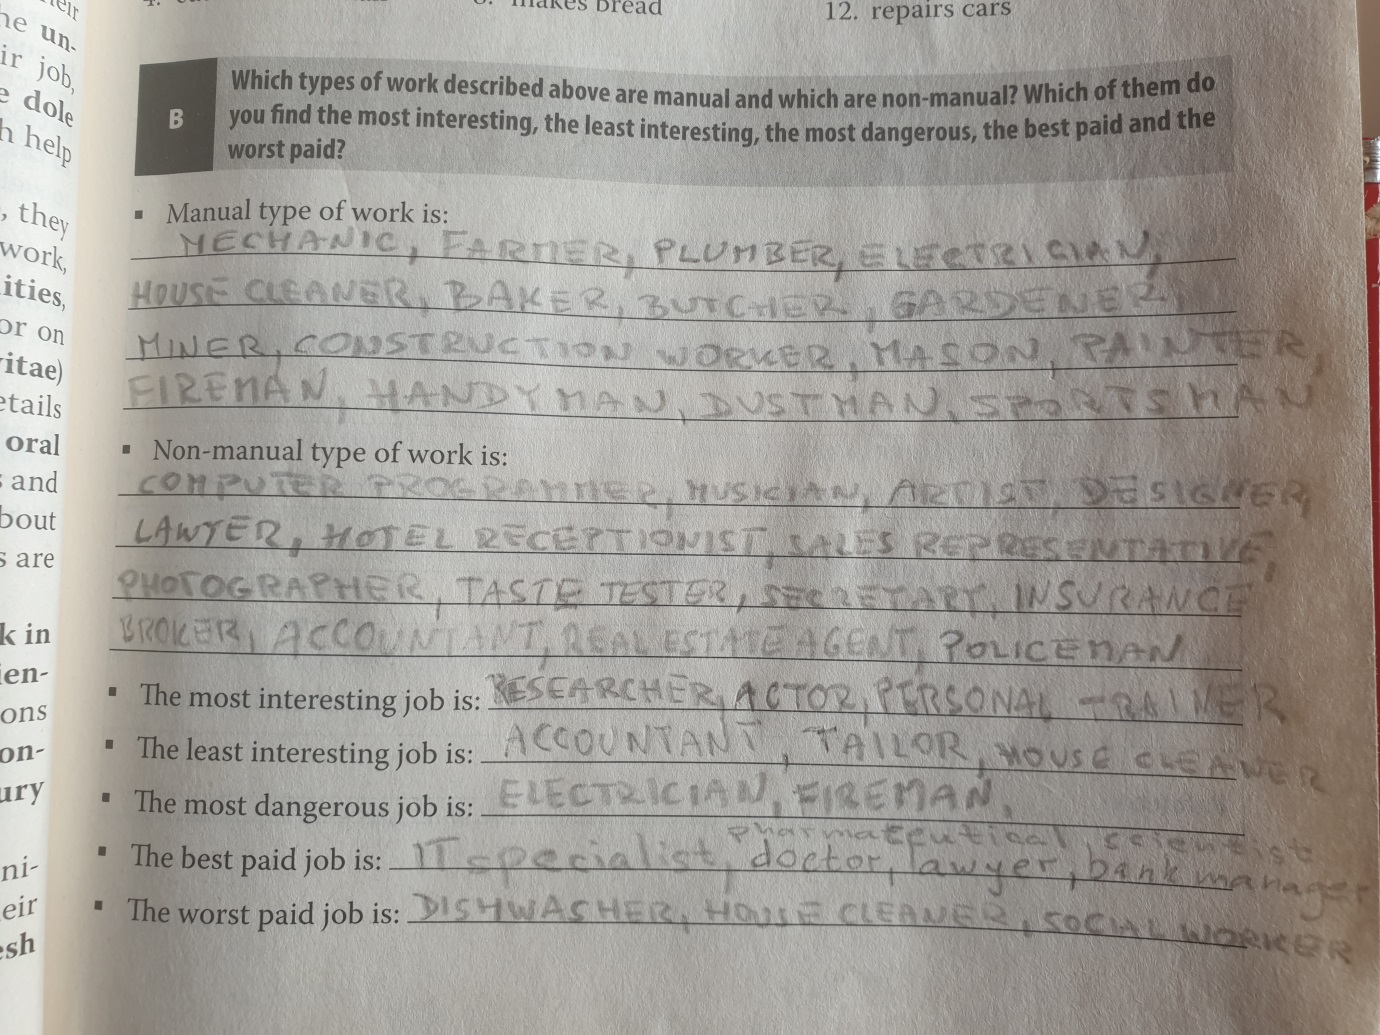 heir
he un-
ir job,
e dole
h help
, they
work,
ities,
or on
vitae)
etails
oral
s and
bout
s are
k in
ien-
ons
on-
ury
ni-
eir
esh
makes bread
12. repairs cars
B
Which types of work described above are manual and which are non-manual? Which of them do
you find the most interesting, the least interesting, the most dangerous, the best paid and the
worst paid?
▪ Manual type of work is:
MECHANIC, FARMER, PLUMBER, ELECTRICIAN,
HOUSE CLEANER, BAKER, BUTCHER, GARDENER,
MINER, CONSTRUCTION WORKER, MASON, PAINTER,
FIREMAN, HANDYMAN, DUSTMAN, SPORTSMAN
▪ Non-manual type of work is:
COMPUTER PROGRAMMER, MUSICIAN, ARTIST, DESIGNER,
LAWYER, HOTEL RECEPTIONIST, SALES REPRESENTATIVE,
PHOTOGRAPHER, TASTE TESTER, SECRETARY, INSURANCE
BROKER, ACCOUNTANT, REAL ESTATE AGENT, POLICEMAN
▪ The most interesting job is: RESEARCHER, ACTOR, PERSONAL TRAINER
▪ The least interesting job is: ACCOUNTANT, TAILOR, HOUSE CLEANER
▪ The most dangerous job is: ELECTRICIAN, FIREMAN,
pharmateutical scientist
▪ The best paid job is: IT specialist, doctor, lawyer, bank manager
▪ The worst paid job is: DISHWASHER, HOUSE CLEANER, SOCIAL WORKER